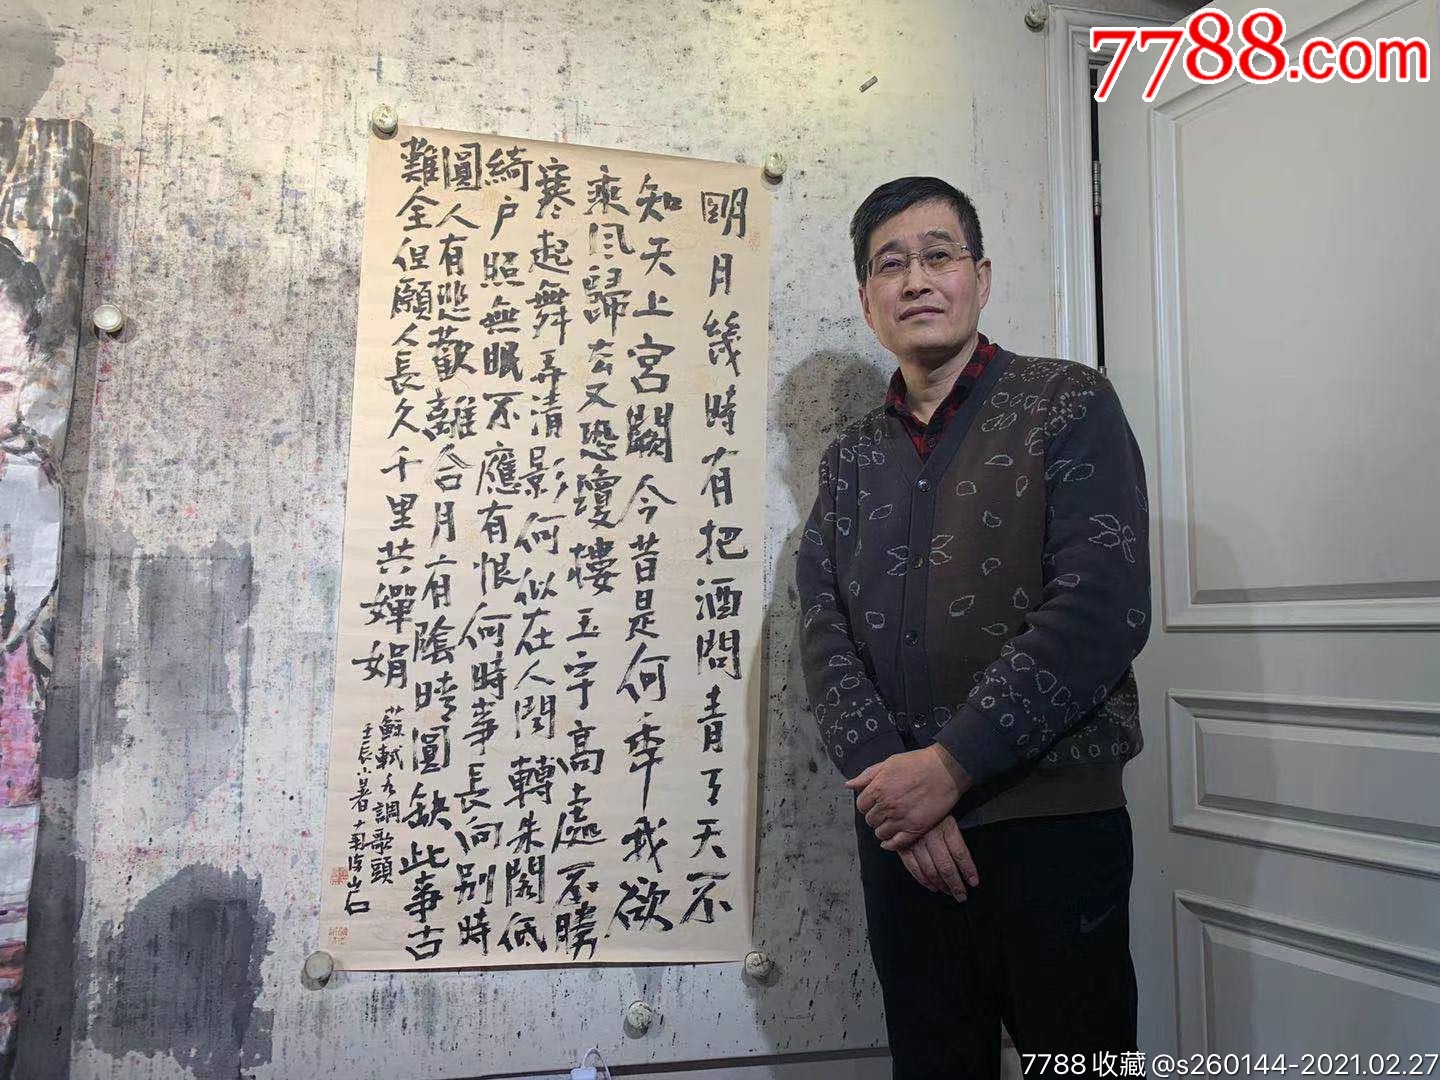 7788.com
明月幾時有把酒問青天不
知天上宮闕今昔是何年我欲
乘风歸去又恐瓊樓玉宇高處不勝
寒起舞弄清影何似在人間轉朱閣低
綺户照無眠不應有恨何時事長向别時
圓人有悲歡離合月有陰晴圓缺此事古
難全但願人長久千里共嬋娟
蘇軾水調歌頭
壬辰小暑南海岩
7788收藏@s260144-2021.02.27